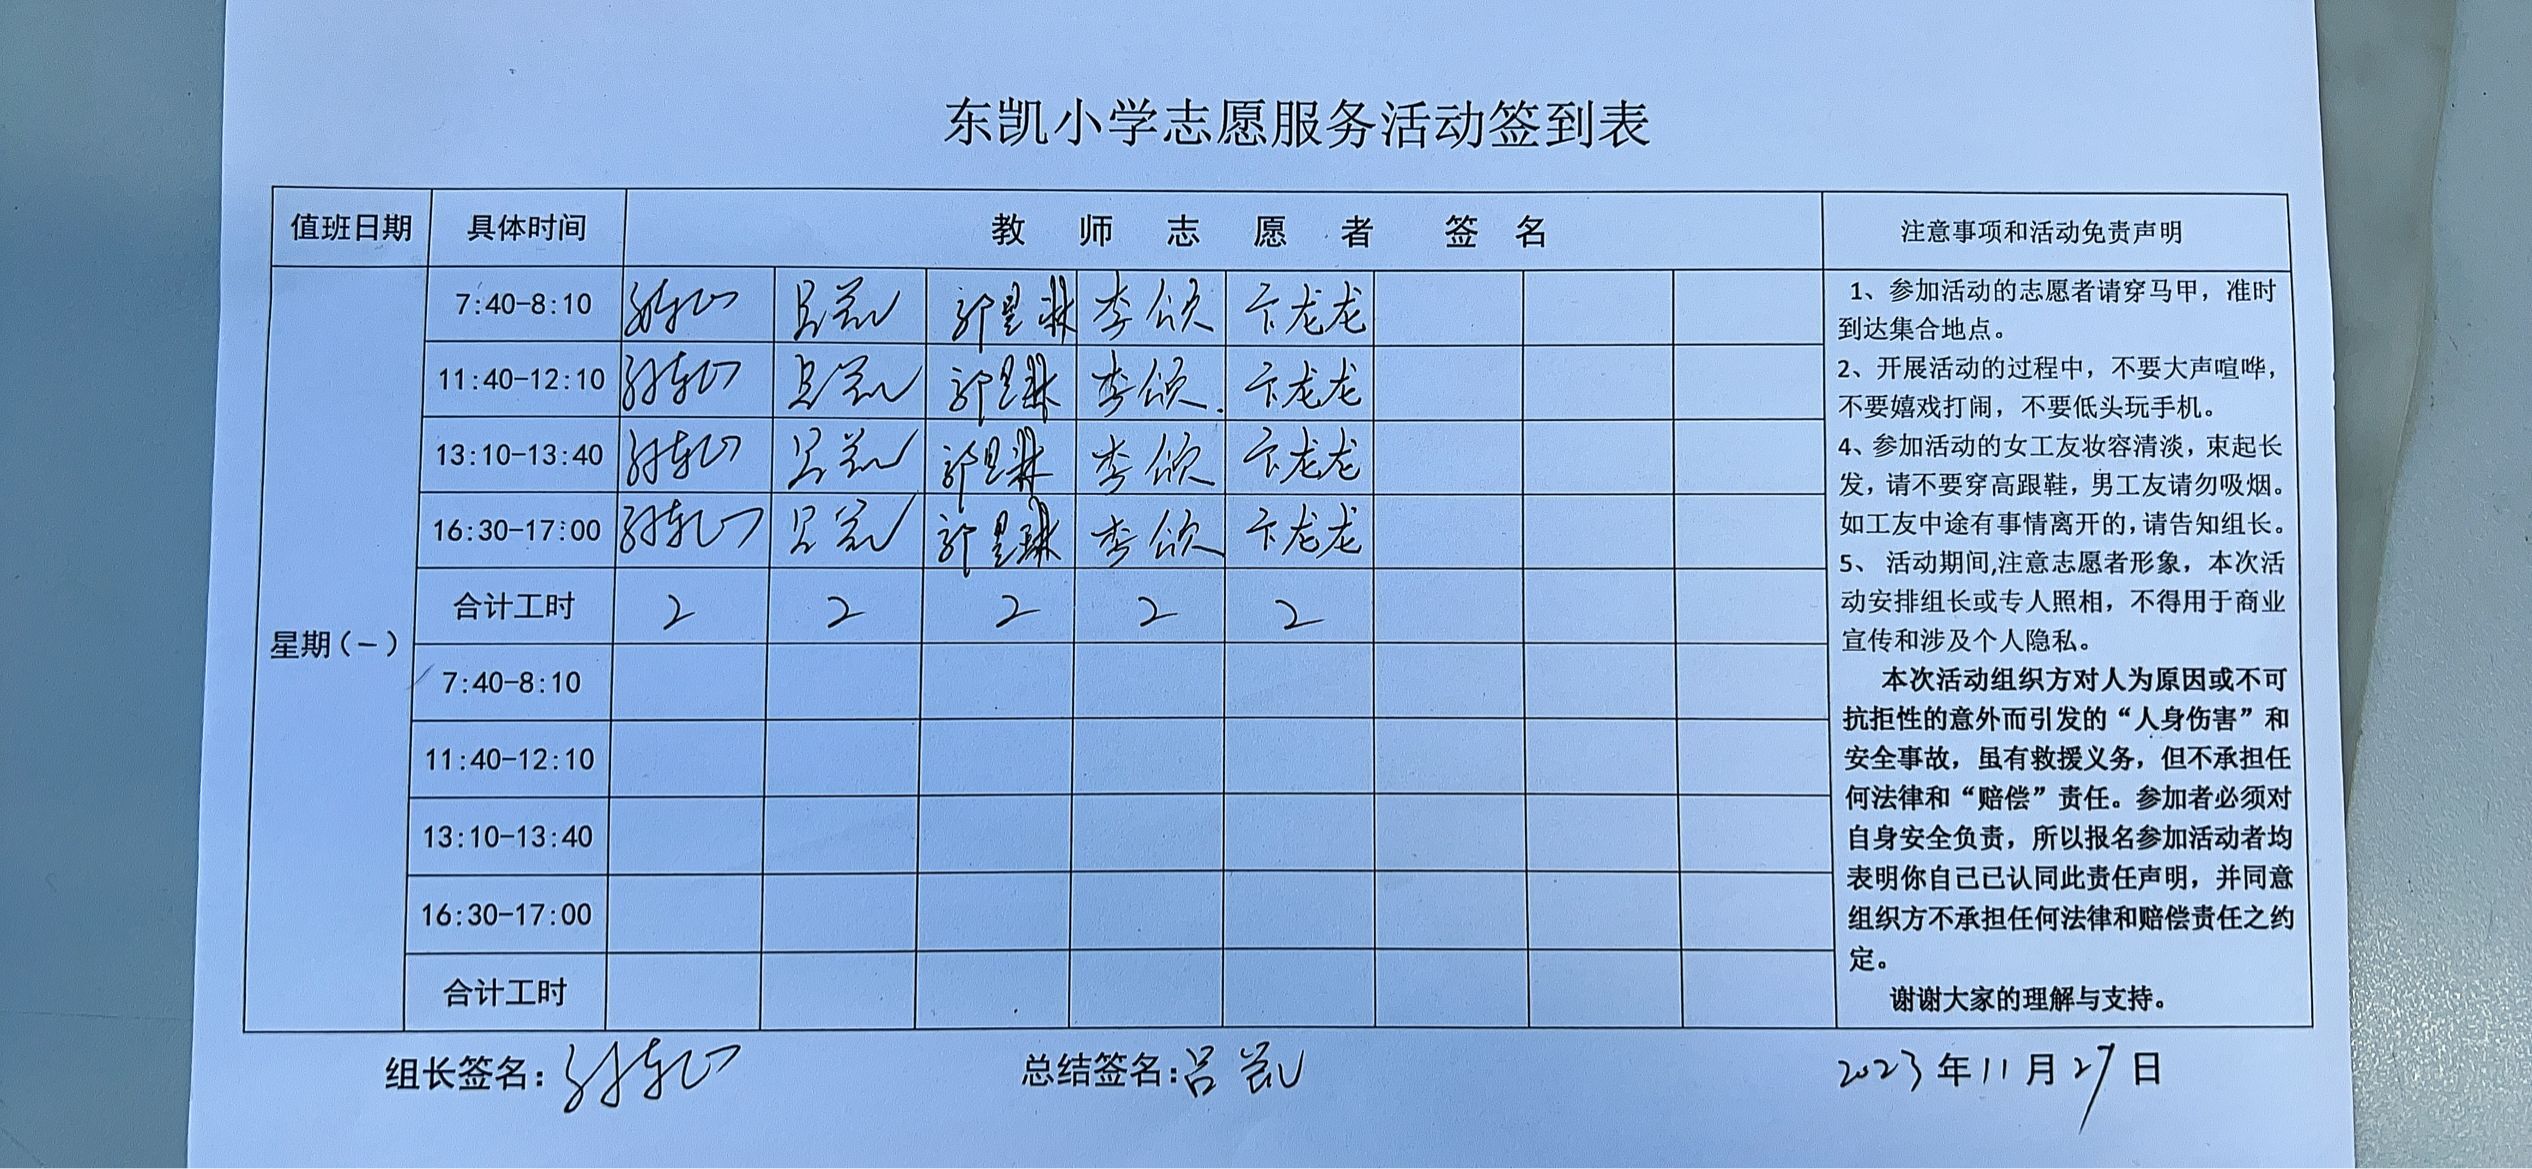 东凯小学志愿服务活动签到表
值班日期 具体时间 教师志愿者 签名 注意事项和活动免责声明
星期(一)
7:40-8:10 李颂 卞龙龙
11:40-12:10 李颂 卞龙龙
13:10-13:40 李颂 卞龙龙
16:30-17:00 李颂 卞龙龙
合计工时 2 2 2 2 2
7:40-8:10
11:40-12:10
13:10-13:40
16:30-17:00
合计工时
1、参加活动的志愿者请穿马甲，准时
到达集合地点。
2、开展活动的过程中，不要大声喧哗，
不要嬉戏打闹，不要低头玩手机。
4、参加活动的女工友妆容清淡，束起长
发，请不要穿高跟鞋，男工友请勿吸烟。
如工友中途有事情离开的，请告知组长。
5、 活动期间,注意志愿者形象，本次活
动安排组长或专人照相，不得用于商业
宣传和涉及个人隐私。
本次活动组织方对人为原因或不可
抗拒性的意外而引发的“人身伤害”和
安全事故，虽有救援义务，但不承担任
何法律和“赔偿”责任。参加者必须对
自身安全负责，所以报名参加活动者均
表明你自己已认同此责任声明，并同意
组织方不承担任何法律和赔偿责任之约
定。
谢谢大家的理解与支持。
组长签名： 总结签名: 2023年11月27日